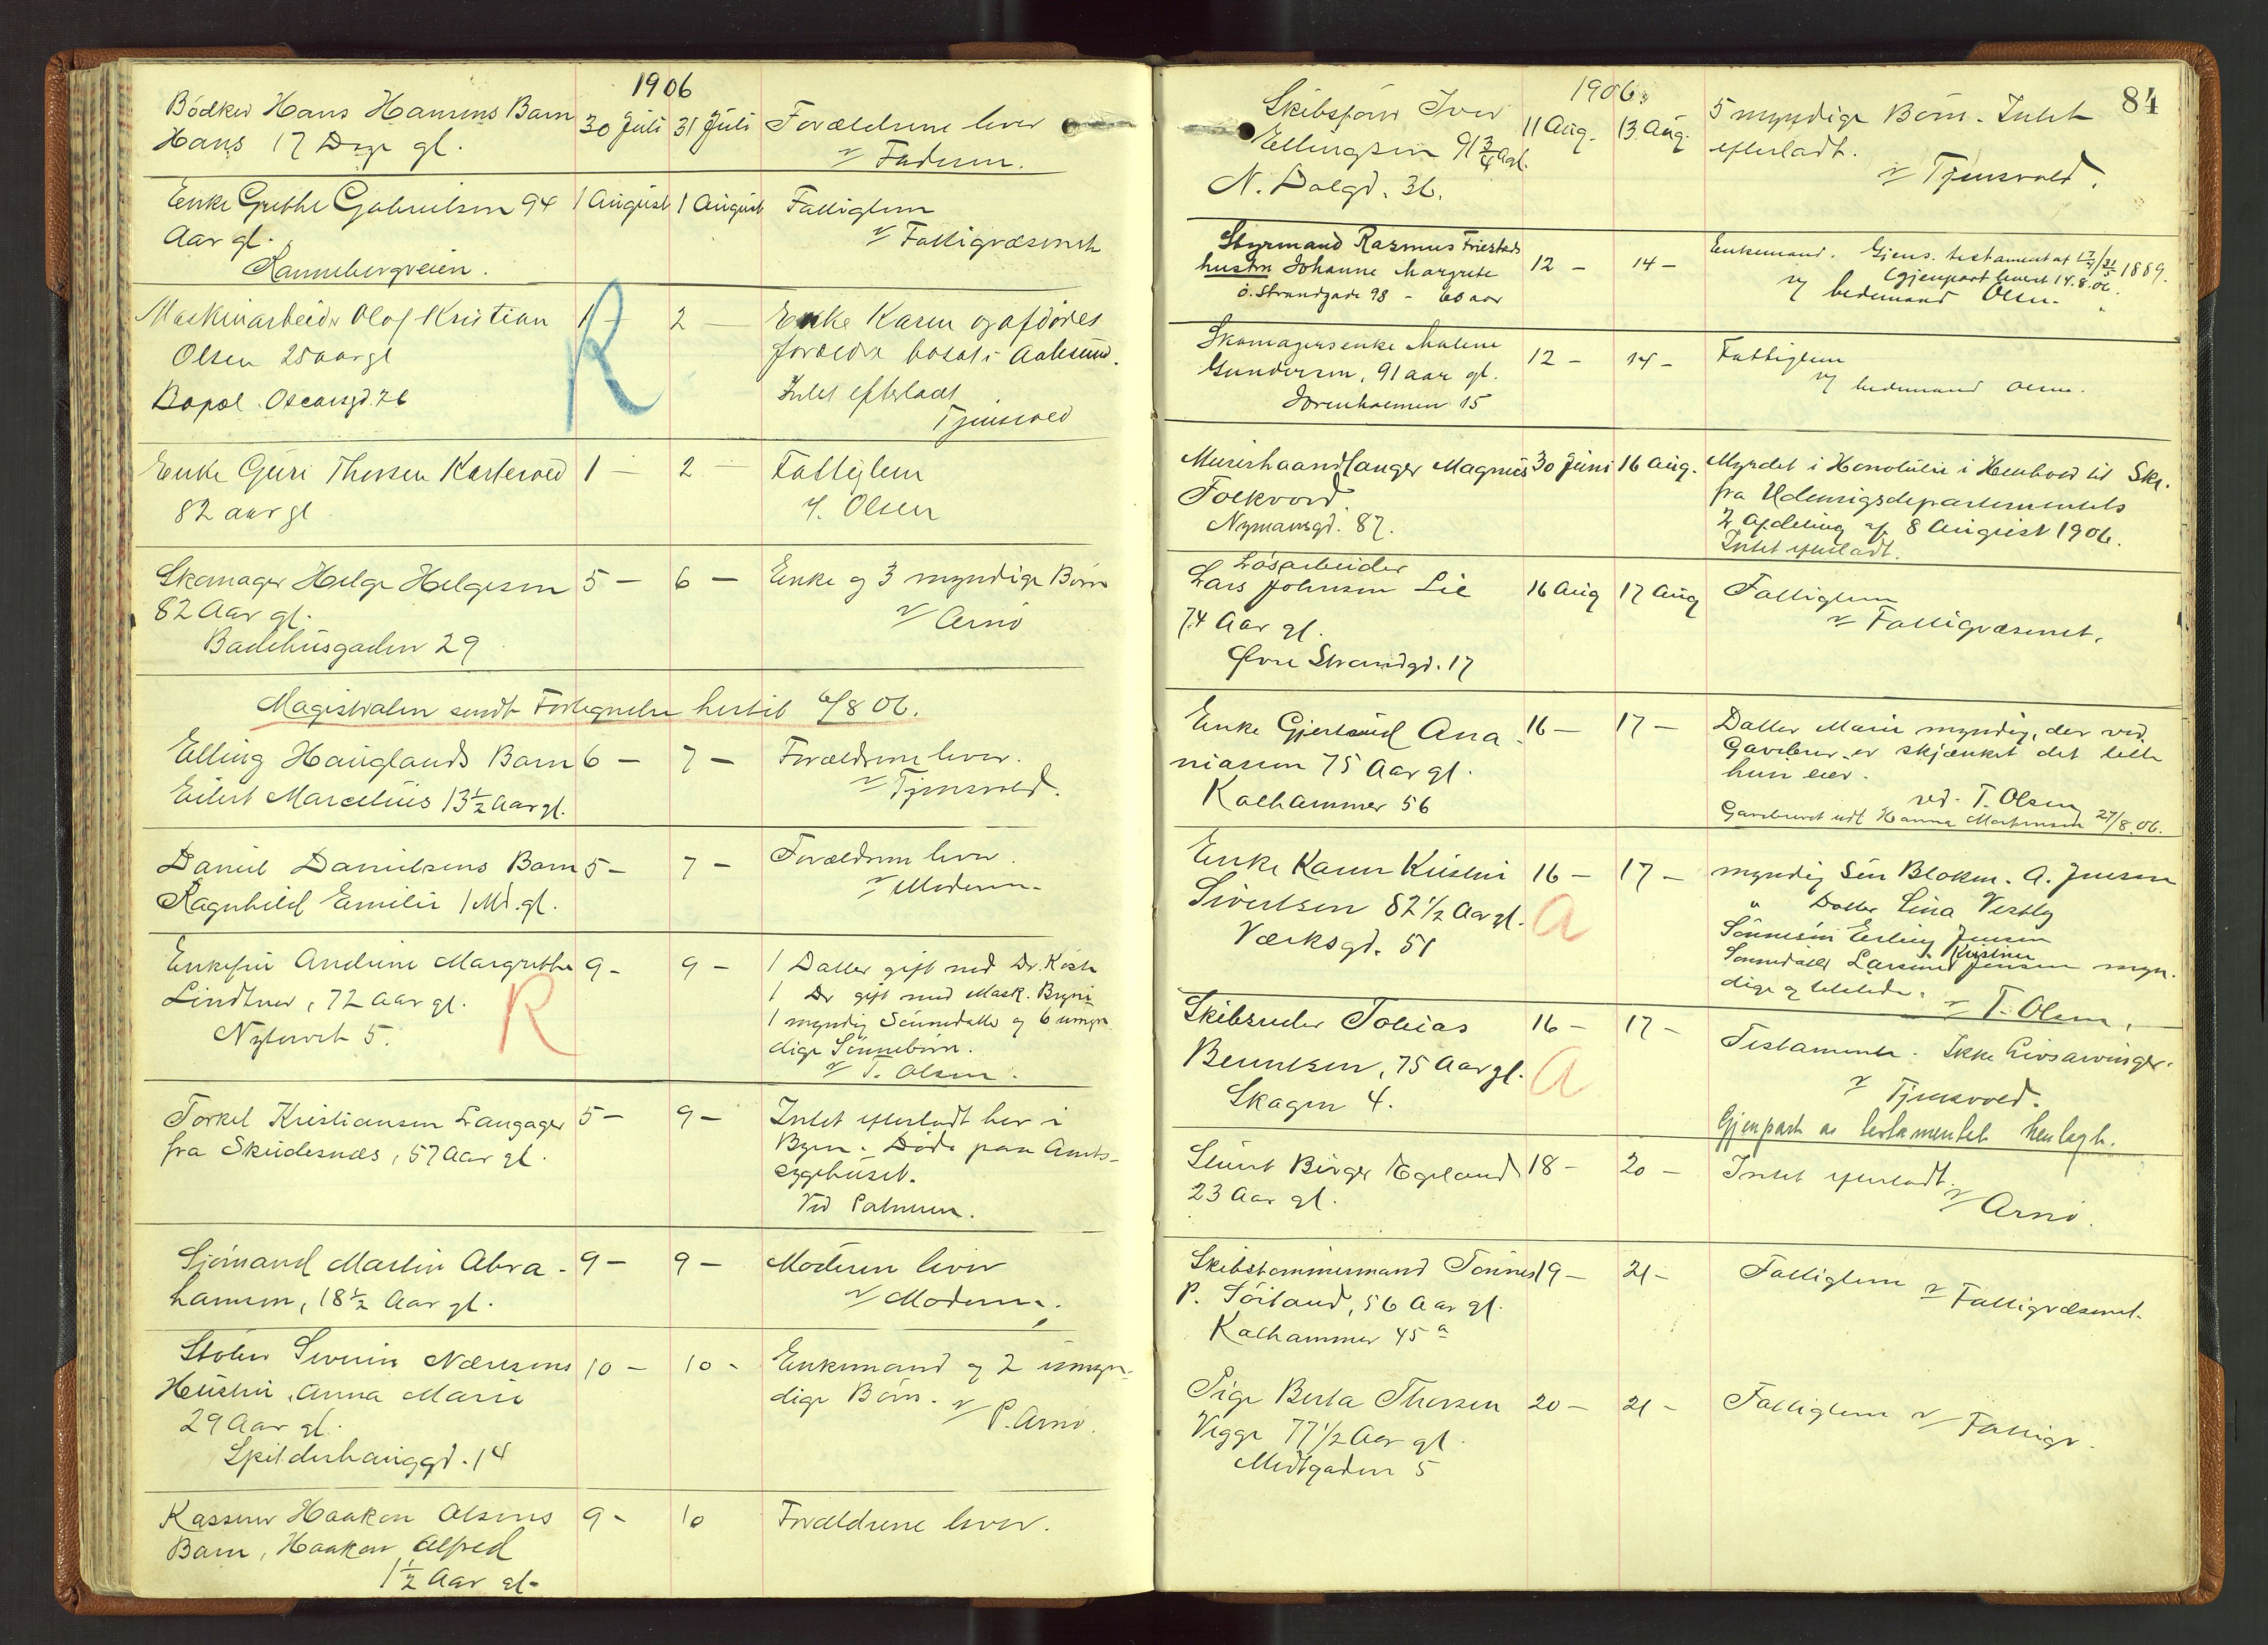 1906
Bödker Hans Hansens Barn 30 Juli 31 Juli Forældrene lever
Hans 17 Dage gl. v Faderen.
Enke Grethe Gabrielsen 94 1 August 1 August Fattiglem
Aar gl. v Fattigvæsenet
Rannebergveien.
Maskinarbeider Olaf Kristian 1 — 2 — Enke Karen og afdödes
Olsen 25 aar gl R forældre bosat i Aalesund.
Bopæl Oscarsgd. 76 Intet efterladt
Tjensvold
Enke Guri Thorsen Kartevold 1 — 2 — Fattiglem
82 aar gl v. Olsen
Skomager Helge Helgesen 5 — 6 — Enke og 3 myndige Börn
82 Aar gl. v Arnö
Badehusgaden 29
Magistraten sendt Fortegnelse hertil 6/8 06.
Elling Hauglands Barn 6 — 7 — Forældrene lever.
Eilert Marcelius 13½ Aar gl. v Tjensvold.
Daniel Danielsens Barn 5 — 7 — Forældrene lever.
Ragnhild Emilie 1 Md. gl. v Moderen.
Enkefru Andrine Margrethe 9 - 9 — 1 Datter gift med Dr. Kosh
Lindtner, 72 Aar gl. R 1 Dr gift med Mask. Bryni
Nytorvet 5. 1 myndig Sönnedatter og 6 umyn
dige Sönnebörn.
v T. Olsen.
Torkel Kristiansen Langager 5 — 9 — Intet efterladt her i
fra Skudesnæs, 57 Aar gl. Byen. Döde paa Amts-
sygehuset.
Ved Patursen.
Sjömand Martin Abra- 9 — 9 — Moderen lever
hamsen, 18½ Aar gl. v Moderen.
Stöber Severin Næresens 10 — 10 - Enkemand og 2 umyn-
Hustru Anna Marie dige Börn. v P. Arnö.
29 Aar gl.
Spilderhauggd. 14
Kasserer Haakon Olsens 9 - 10 Forældrene lever.
Barn, Haakon Alfred
1½ Aar gl.
1906. 84
Skibsförer Iver 11 Aug. 13 Aug. 5 myndige Börn. Intet
Ellingsen 91¾ Aar gl. efterladt.
N. Dalgd. 36. v Tjensvold.
Styrmand Rasmus Friestads Enkemand. Gjens. testament af 1889.
hustru Johanne Margrete 12 — 14 — (gjenpart leveret 14.8.06.
ö. Strandgade 98 - 60 aar v/ bedemand Olsen.
Skomagersenke Malene 12 — 14 — Fattiglem
Gundersen, 91 aar gl. v/ bedemand Olsen.
Jorenholmen 15
Murerhaandlanger Magnus 30 Juni 16 Aug. Myrdet i Honolulu i Henhold til Skr.
Folkvord. fra Udenrigsdepartementets
Nymansgd. 87. 2 Afdeling af 8 August 1906.
Intet efterladt.
Lösarbeider
Lars Johnsen Lie 16 Aug 17 Aug Fattiglem
74 Aar gl. v Fattigvæsenet.
Övre Strandgd. 17
Enke Gjertrud Ana- 16 — 17 — Datter Marie myndig, der ved
niasen 75 Aar gl. Gavebrev er skjænket det lette
Kalhammer 56 hun eier.
ved. T. Olsen
Gavebrevet udl Hanna Mortensen 27/8.06.
Enke Karen Kristine 16 — 17 — myndig Sön Blokm. A. Jensen
Sivertsen 82½ Aar gl. A " Datter Lina Vestly
Værksgd. 51 Sönnesön Erling Jensen
Kristine
Sönnedatter Larsine Jensen myn-
dige og tilstede. v T. Olsen.
Skibsreder Tobias 16 — 17 — Testamente. Ikke Livsarvinger.
Berentsen, 75 Aar gl. A v Tjensvold.
Skagen 4. Gjenpart av testamentet henlagt.
Student Birger Egeland 18 — 20 — Intet efterladt.
23 Aar gl. v Arnö.
Skibstömmermand Tönnes 19 — 21 — Fattiglem v Fattigvæsenet.
P. Söiland, 56 Aar gl.
Kalhammer 45 a
Pige Berta Thorsen 20 — 21 — Fattiglem v Fattigv.
Vigge 77½ Aar gl.
Midtgaden 5